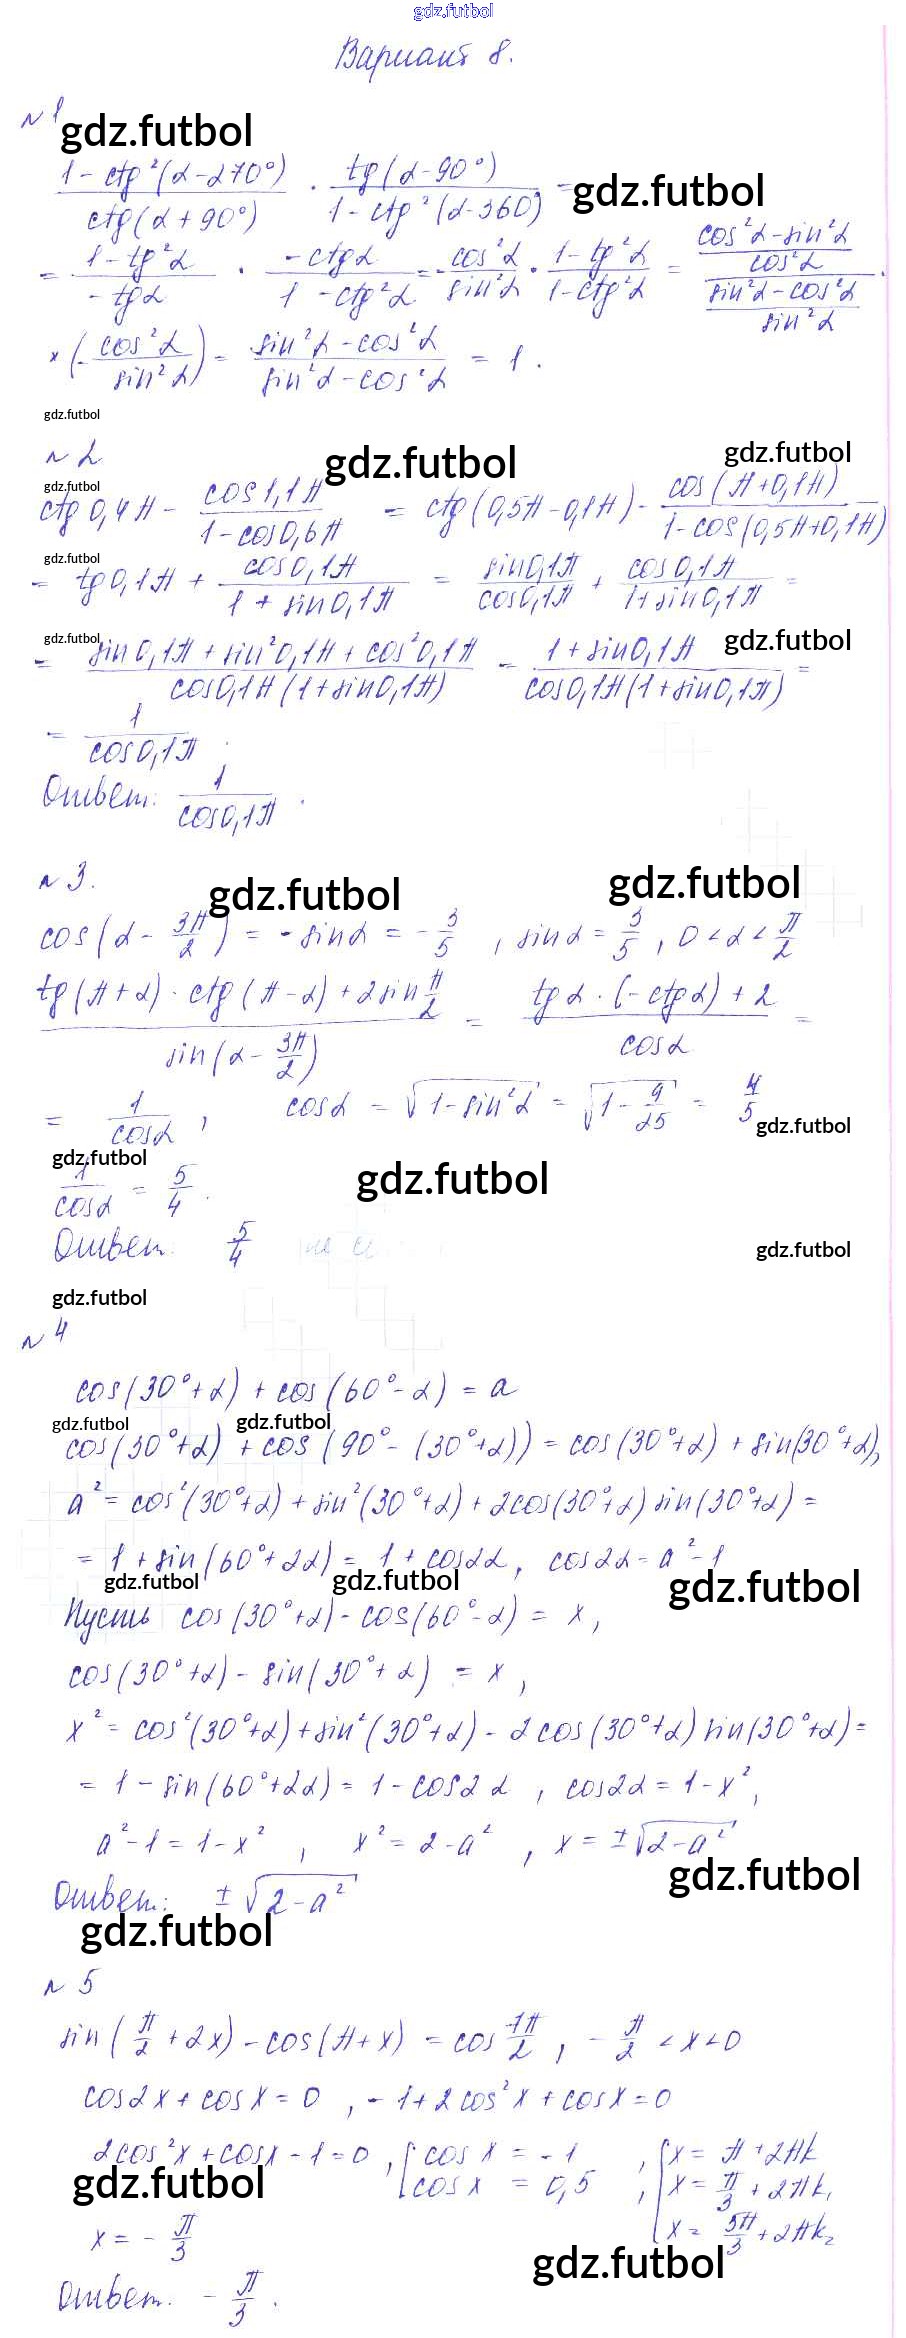 gdz.futbol
Вариант 8.
№1
gdz.futbol
(1 - ctg²(α-270°))/(ctg(α+90°)) · (tg(α-90°))/(1 - ctg²(α-360)) =
gdz.futbol
= (1 - tg²α)/(-tgα) · (-ctgα)/(1 - ctg²α) = -cos²α/sin²α · (1 - tg²α)/(1 - ctg²α) = ((cos²α - sin²α)/cos²α)/((sin²α - cos²α)/sin²α) ·
× (-cos²α/sin²α) = (sin²α - cos²α)/(sin²α - cos²α) = 1.
gdz.futbol
№2
gdz.futbol
gdz.futbol
gdz.futbol
ctg 0,4π - cos1,1π/(1 - cos0,6π) = ctg(0,5π - 0,1π) - cos(π+0,1π)/(1 - cos(0,5π+0,1π)) =
gdz.futbol
= tg0,1π + cos0,1π/(1 + sin0,1π) = sin0,1π/cos0,1π + cos0,1π/(1+sin0,1π) =
gdz.futbol
gdz.futbol
= (sin0,1π + sin²0,1π + cos²0,1π)/(cos0,1π(1+sin0,1π)) = (1+sin0,1π)/(cos0,1π(1+sin0,1π)) =
= 1/cos0,1π.
Ответ: 1/cos0,1π.
№3.
gdz.futbol
gdz.futbol
cos(α - 3π/2) = -sinα = -3/5, sinα = 3/5, 0<α<π/2
(tg(π+α) · ctg(π-α) + 2sin π/2)/(sin(α - 3π/2)) = (tgα · (-ctgα) + 2)/cosα =
= 1/cosα, cosα = √(1 - sin²α) = √(1 - 9/25) = 4/5
gdz.futbol
gdz.futbol
1/cosα = 5/4.
gdz.futbol
Ответ: 5/4
gdz.futbol
gdz.futbol
№4
cos(30°+α) + cos(60°-α) = a
gdz.futbol
gdz.futbol
cos(30°+α) + cos(90° - (30°+α)) = cos(30°+α) + sin(30°+α),
a² = cos²(30°+α) + sin²(30°+α) + 2cos(30°+α) sin(30°+α) =
= 1 + sin(60°+2α) = 1 + cos2α, cos2α = a² - 1
gdz.futbol
gdz.futbol
gdz.futbol
Пусть cos(30°+α) - cos(60°-α) = x,
cos(30°+α) - sin(30°+α) = x,
x² = cos²(30°+α) + sin²(30°+α) - 2cos(30°+α) sin(30°+α) =
= 1 - sin(60°+2α) = 1 - cos2α, cos2α = 1 - x²,
a² - 1 = 1 - x², x² = 2 - a², x = ±√(2 - a²)
gdz.futbol
Ответ: ±√(2 - a²)
gdz.futbol
№5
sin(π/2 + 2x) - cos(π+x) = cos 7π/2, -π/2 < x < 0
cos2x + cosx = 0, -1 + 2cos²x + cosx = 0
2cos²x + cosx - 1 = 0, [cosx = -1, [x = π + 2πk
gdz.futbol
cosx = 0,5, x = π/3 + 2πk₁
x = -π/3 x = 5π/3 + 2πk₂
gdz.futbol
Ответ: -π/3.